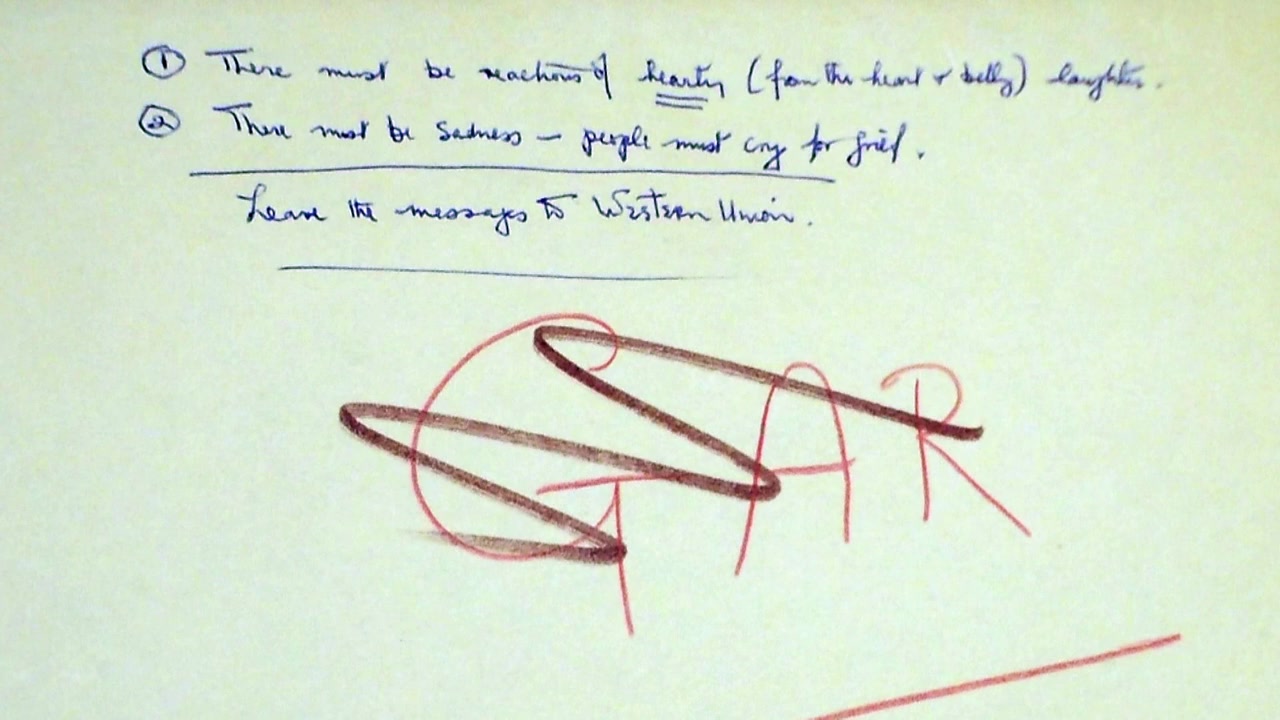 ① There must be reactions of hearty (from the heart & belly) laughter.
② There must be sadness — people must cry for grief.
Leave the messages to Western Union.
GGGAR